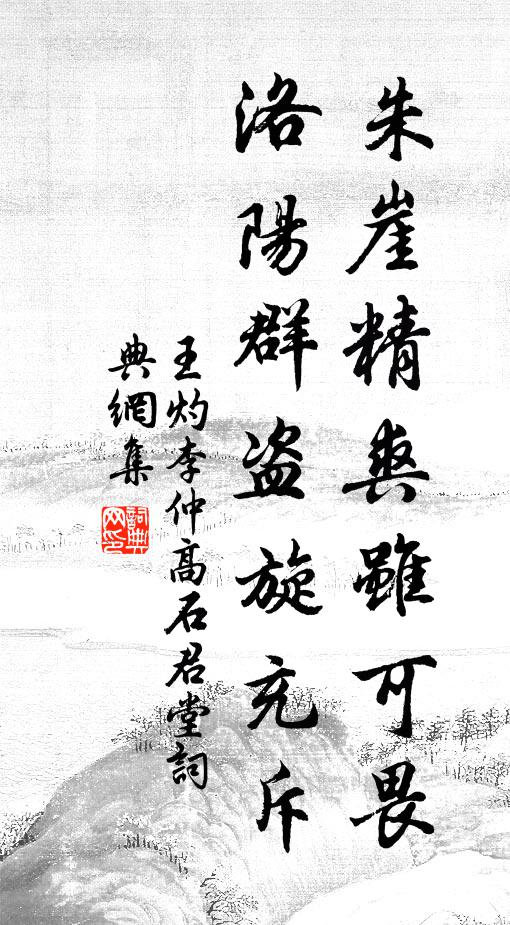 朱崖精爽雖可畏
洛陽群盗旋充斥
王灼李仲高石君堂詞
典網集
詞典网印